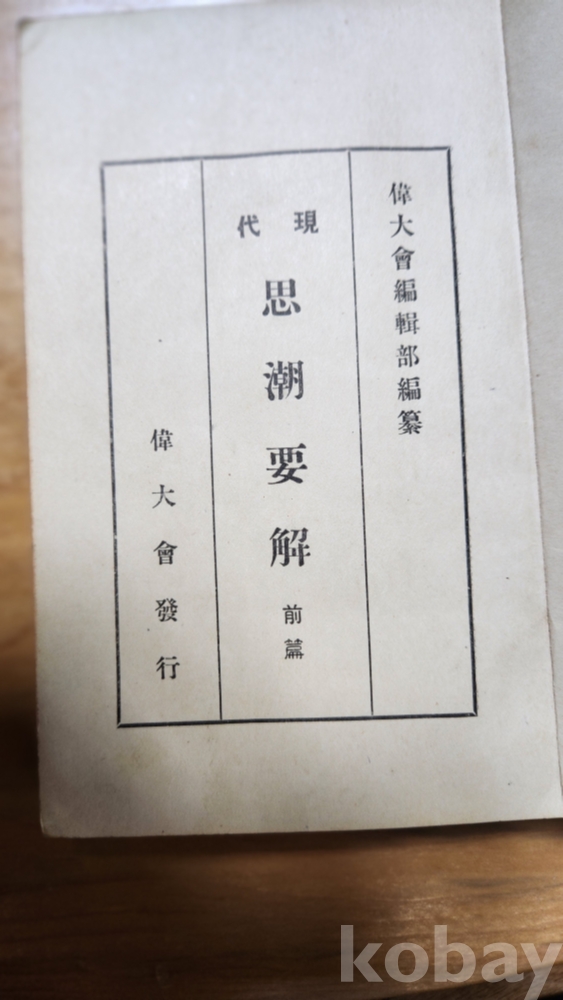 偉大會編輯部編纂
現代
思潮要解 前篇
偉大會發行
kobay